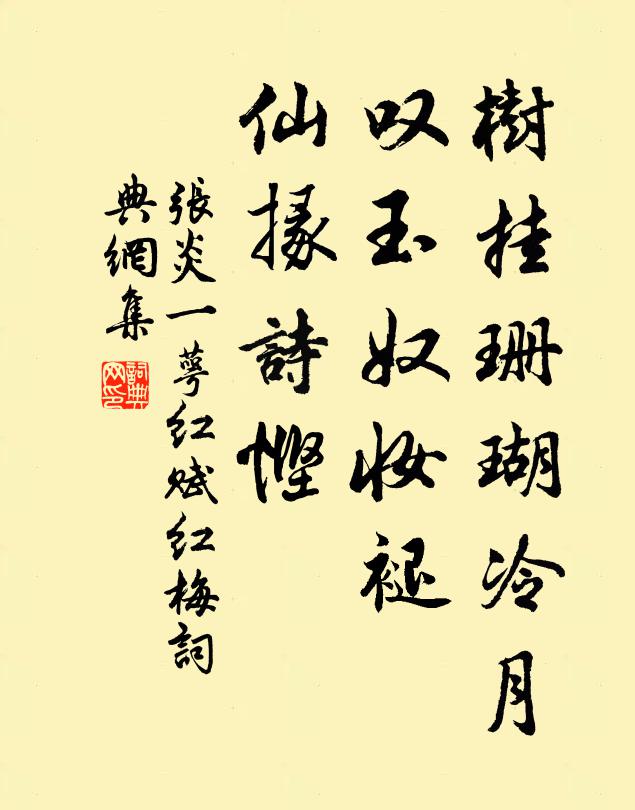 樹挂珊瑚冷月
叹玉奴妆褪
仙掾詩慳
張炎一萼紅赋红梅詞
典網集
詞典網印